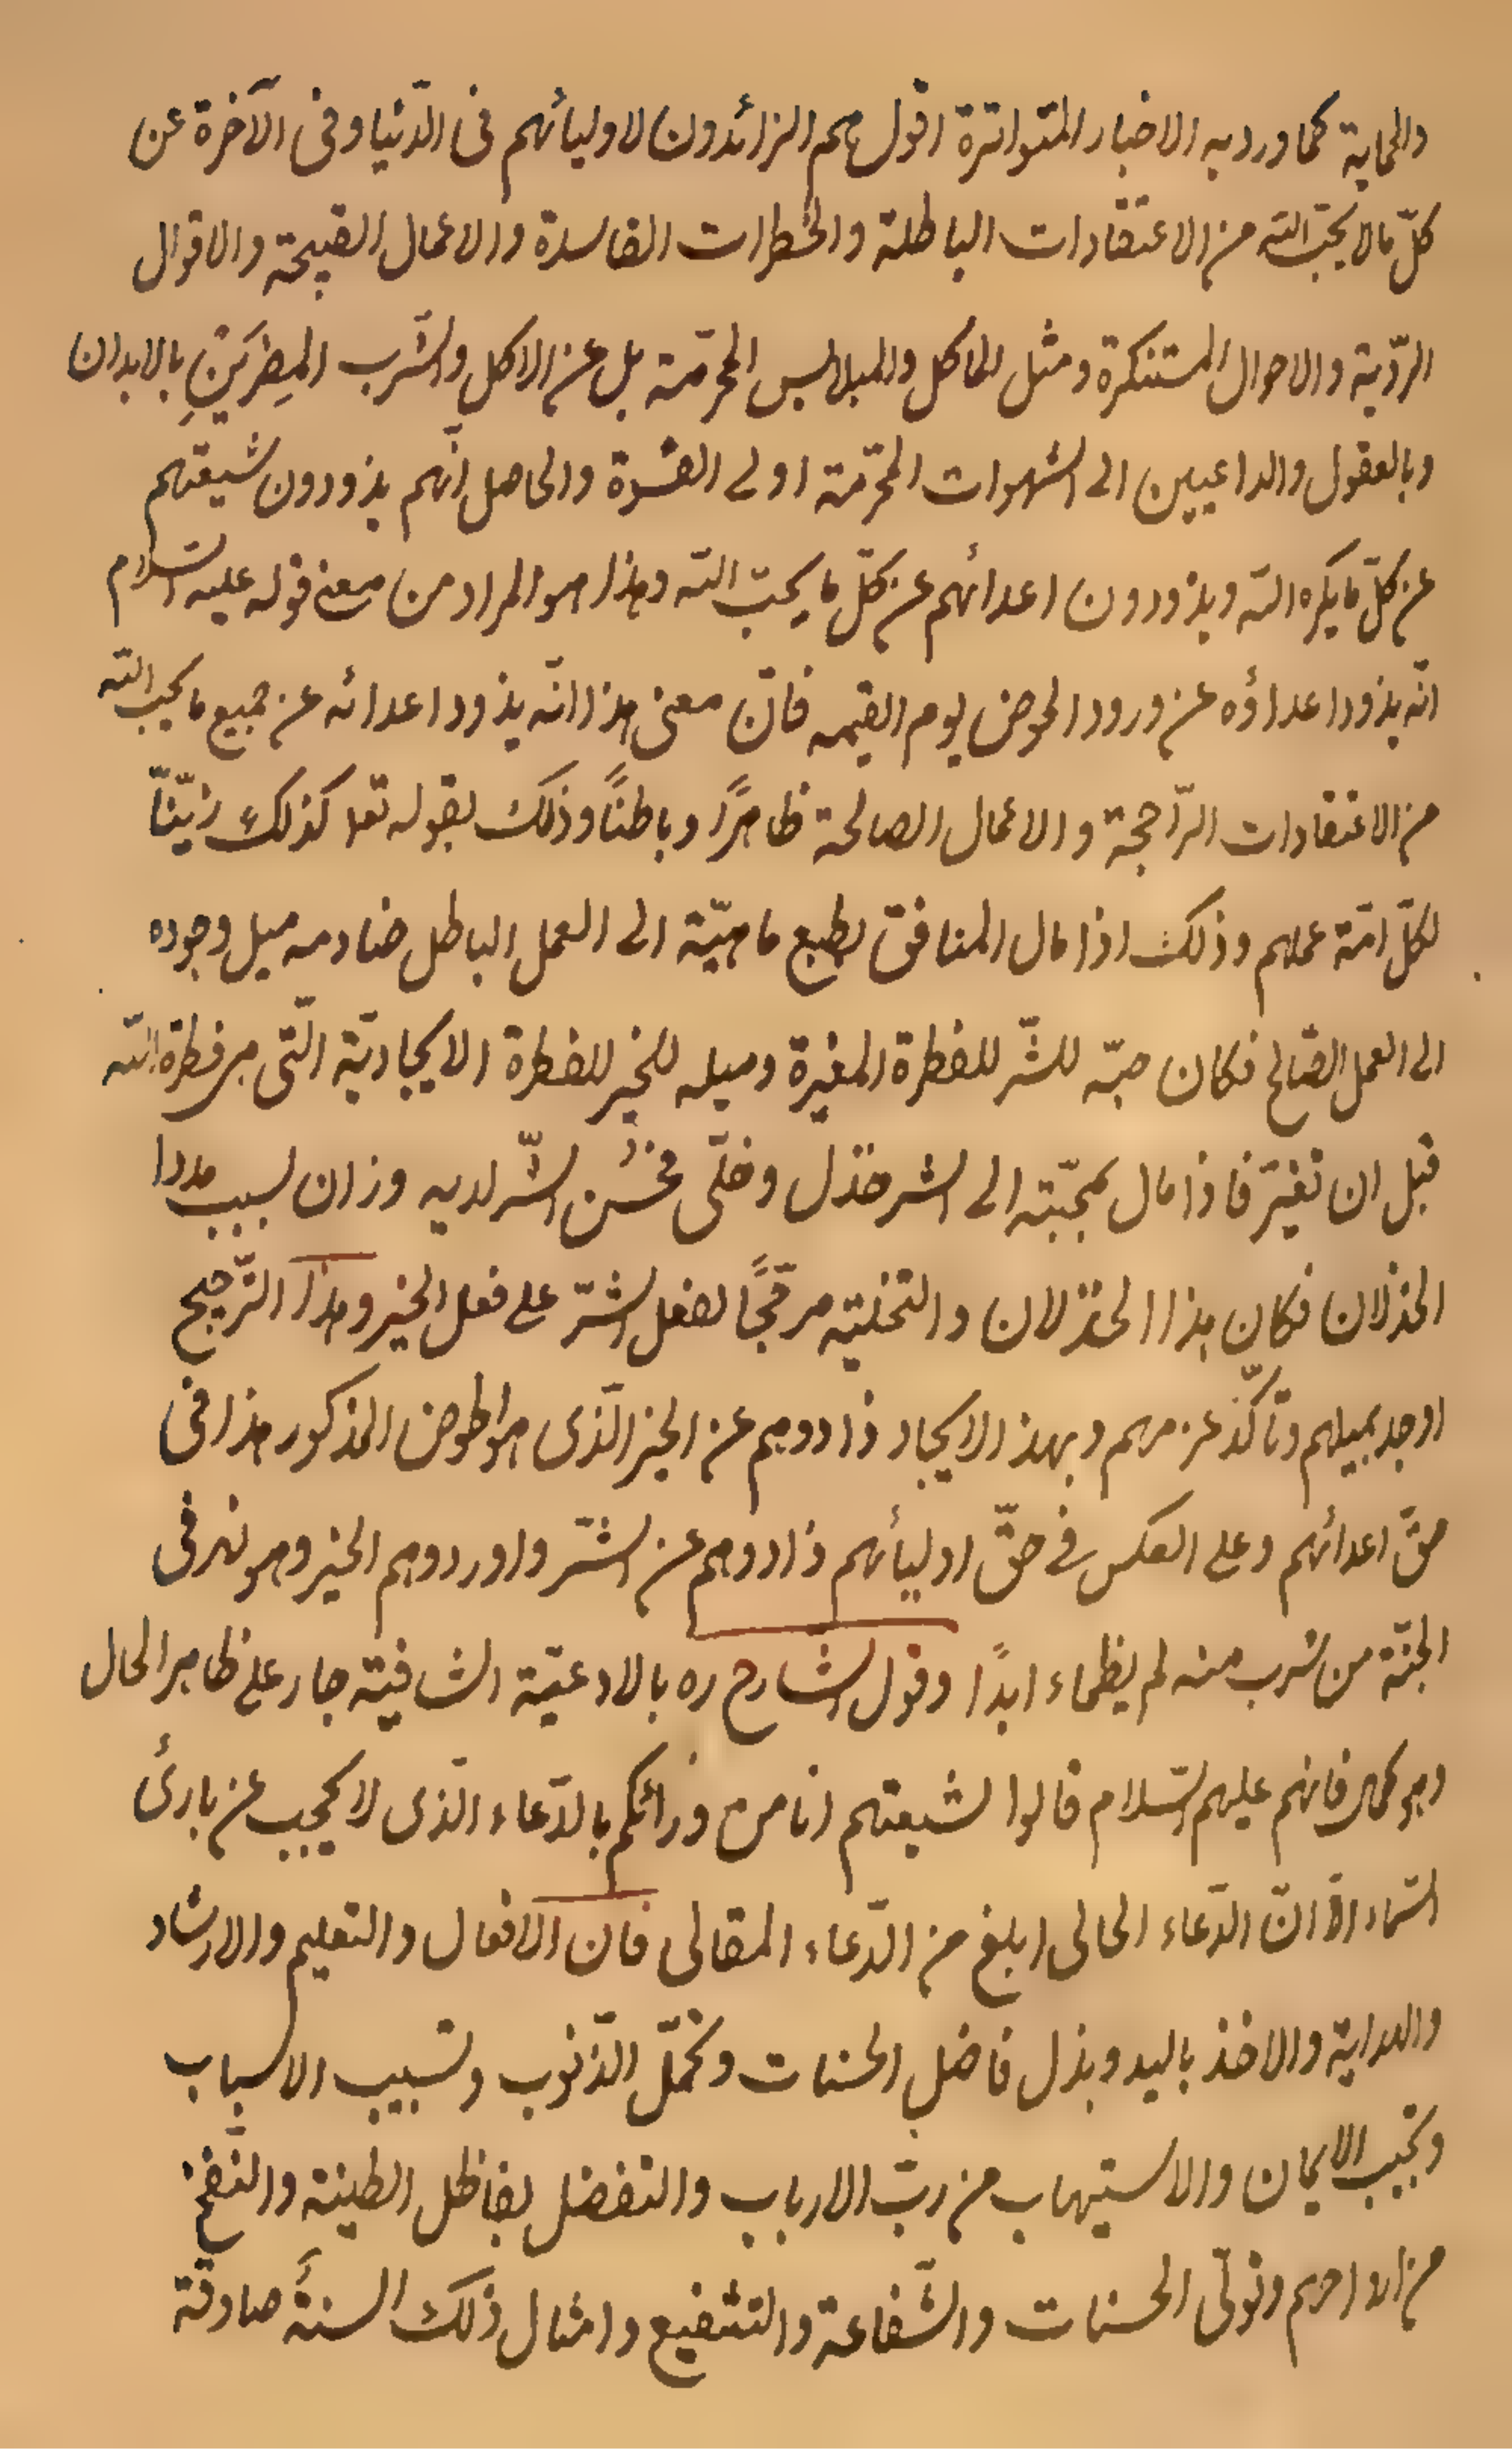 والحماية كما ورد به الاخبار المتواترة اقول هم الزائدون لاوليائهم فى الدّنيا وفى الآخرة عن
كلّ ما لا يحبّ اللّه من الاعتقادات الباطلة والخطرات الفاسدة والاعمال القبيحة والاقوال
الرّدية والاحوال المستنكرة ومثل المآكل والملابس المحرّمة بل عن الاكل والشّرب المضِرّيَنِ بالابدان
وبالعقول والداعيين الى الشهوات المحرّمة او لى القسوة والحاصل انّهم يذودون شيعتهم
عن كلّ ما يكره اللّه ويذودون اعدائهم عن كلّ ما يحبّ اللّه وهذا هو المراد من معنى قوله عليه السّلام
انّه يذود اعداؤه عن ورود الحوض يوم القيمه فانّ معنى هذا انّه يذود اعدائه عن جميع ما يحب اللّه
من الاعتقادات الرّاجحة والاعمال الصالحة ظاهرًا وباطنًا وذلك بقوله تعا كذلك زيّنّا
لكلّ امّة عملهم وذلك اذا مال المنافق بطبع ماهيّة الى العمل الباطل ضادمه ميل وجوده
الى العمل الصّالح فكان حبّه للشّر للفطرة المغيرة وميله للخير للفطرة الايجاديّة الّتى هى فطرة اللّه
قبل ان تغيّر فاذا مال بمحبّته الى الشر خذل وخلّى فحَسُن الشّر لديه وزان بسبب مددا
الخذلان فكان هذا الخذلان والتخلية مرجّحًا لفعل الشّر على فعل الخير وهذا التّرجيح
اوجد بميلهم وتأكّد عزمهم وبهذا الايجاد ذادوهم عن الخير الّذى هو الحوض المذكور هذا فى
حقّ اعدائهم وعلى العكس فى حقّ اوليائهم ذادوهم عن الشّر واوردوهم الخير وهو نهر فى
الجنّة من شرب منه لم يظماء ابدًا وقول الشارح ره بالادعيّة الشافيّة جار على ظاهر الحال
وهو كما هى فانهم عليهم السّلام قالوا لشيعتهم انا من ورائكم بالدّعاء الّذى لا يحجب عن بارئ
السّماء الّا انّ الدّعاء الحالى ابلغ من الدّعاء المقالى فان الافعال والتعليم والارشاد
والهداية والاخذ باليد وبذل فاضل الحسنات وتحمّل الذّنوب وتسبيب الاسباب
وتحبيب الايمان والاستيهاب من ربّ الارباب والتفضل بفاظل الطينة والنّفخ
من ارواحهم وتولّى الحسنات والشّفاعة والتشفيع وامثال ذلك السنةٌ صادقة